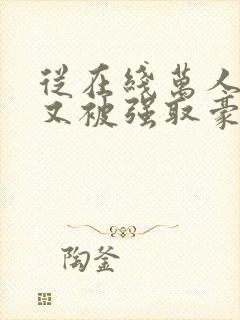 從在綫萬人
又被强取豪
陶釜